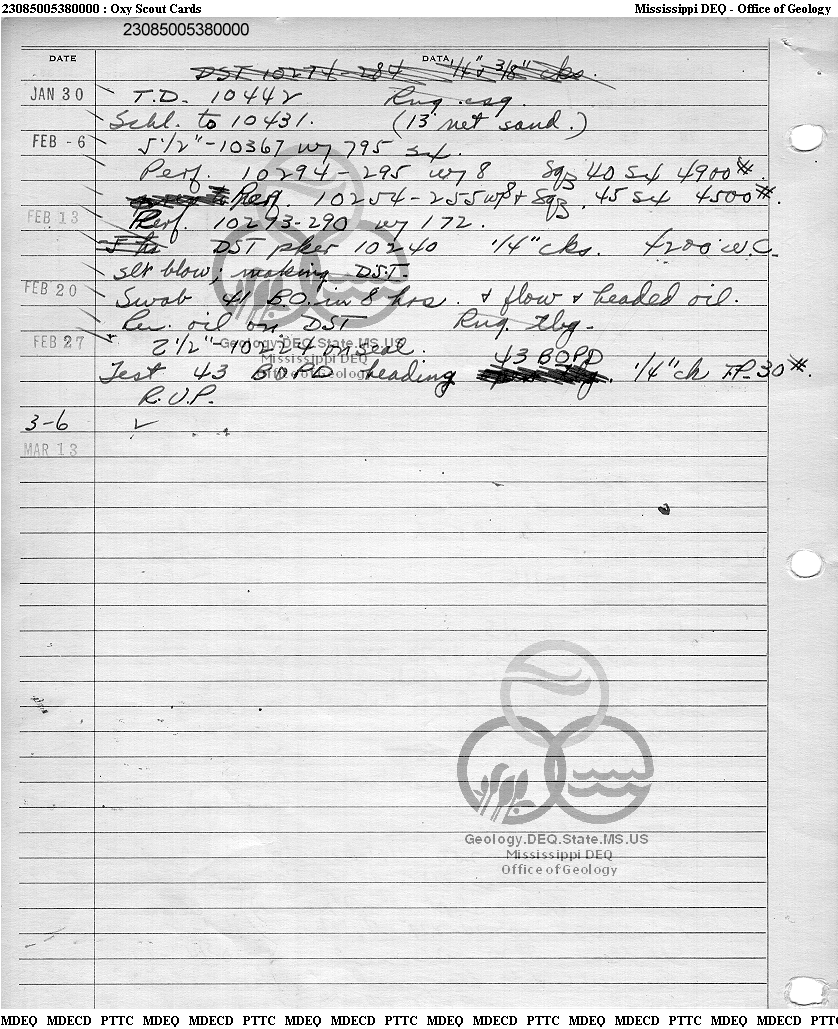 23085005380000 : Oxy Scout Cards Mississippi DEQ - Office of Geology
23085005380000
DATE DATA
DST 10274-284 1/4" & 3/8" cks.
JAN 30 T.D. 10442 Rng csg.
Schl. to 10431. (13' net sand.)
FEB - 6 5 1/2"-10367 w/ 795 sx.
Perf. 10294-295 w/ 8 Sqz 40 sx 4900#.
Perf. 10254-255 w/ 8 & Sqz 45 sx 4500#.
FEB 13 Perf. 10273-290 w/ 172.
5 hr DST pker 10240 1/4" cks. 4200' W.C.
slt blow; making DST.
FEB 20 Swab 41 B.O. in 8 hrs. & flow & headed oil.
Rev. oil on DST Rng. tbg.
FEB 27 2 1/2"-10224 on seal.
Geology.DEQ.State.MS.US
Mississippi DEQ
Office of Geology
43 BOPD
Test 43 BOPD heading 1/4" ck T.P. 30#.
R.U.P.
3-6 ✓
MAR 13
Geology.DEQ.State.MS.US
Mississippi DEQ
Office of Geology
MDEQ MDECD PTTC MDEQ MDECD PTTC MDEQ MDECD PTTC MDEQ MDECD PTTC MDEQ MDECD PTTC MDEQ MDECD PTT